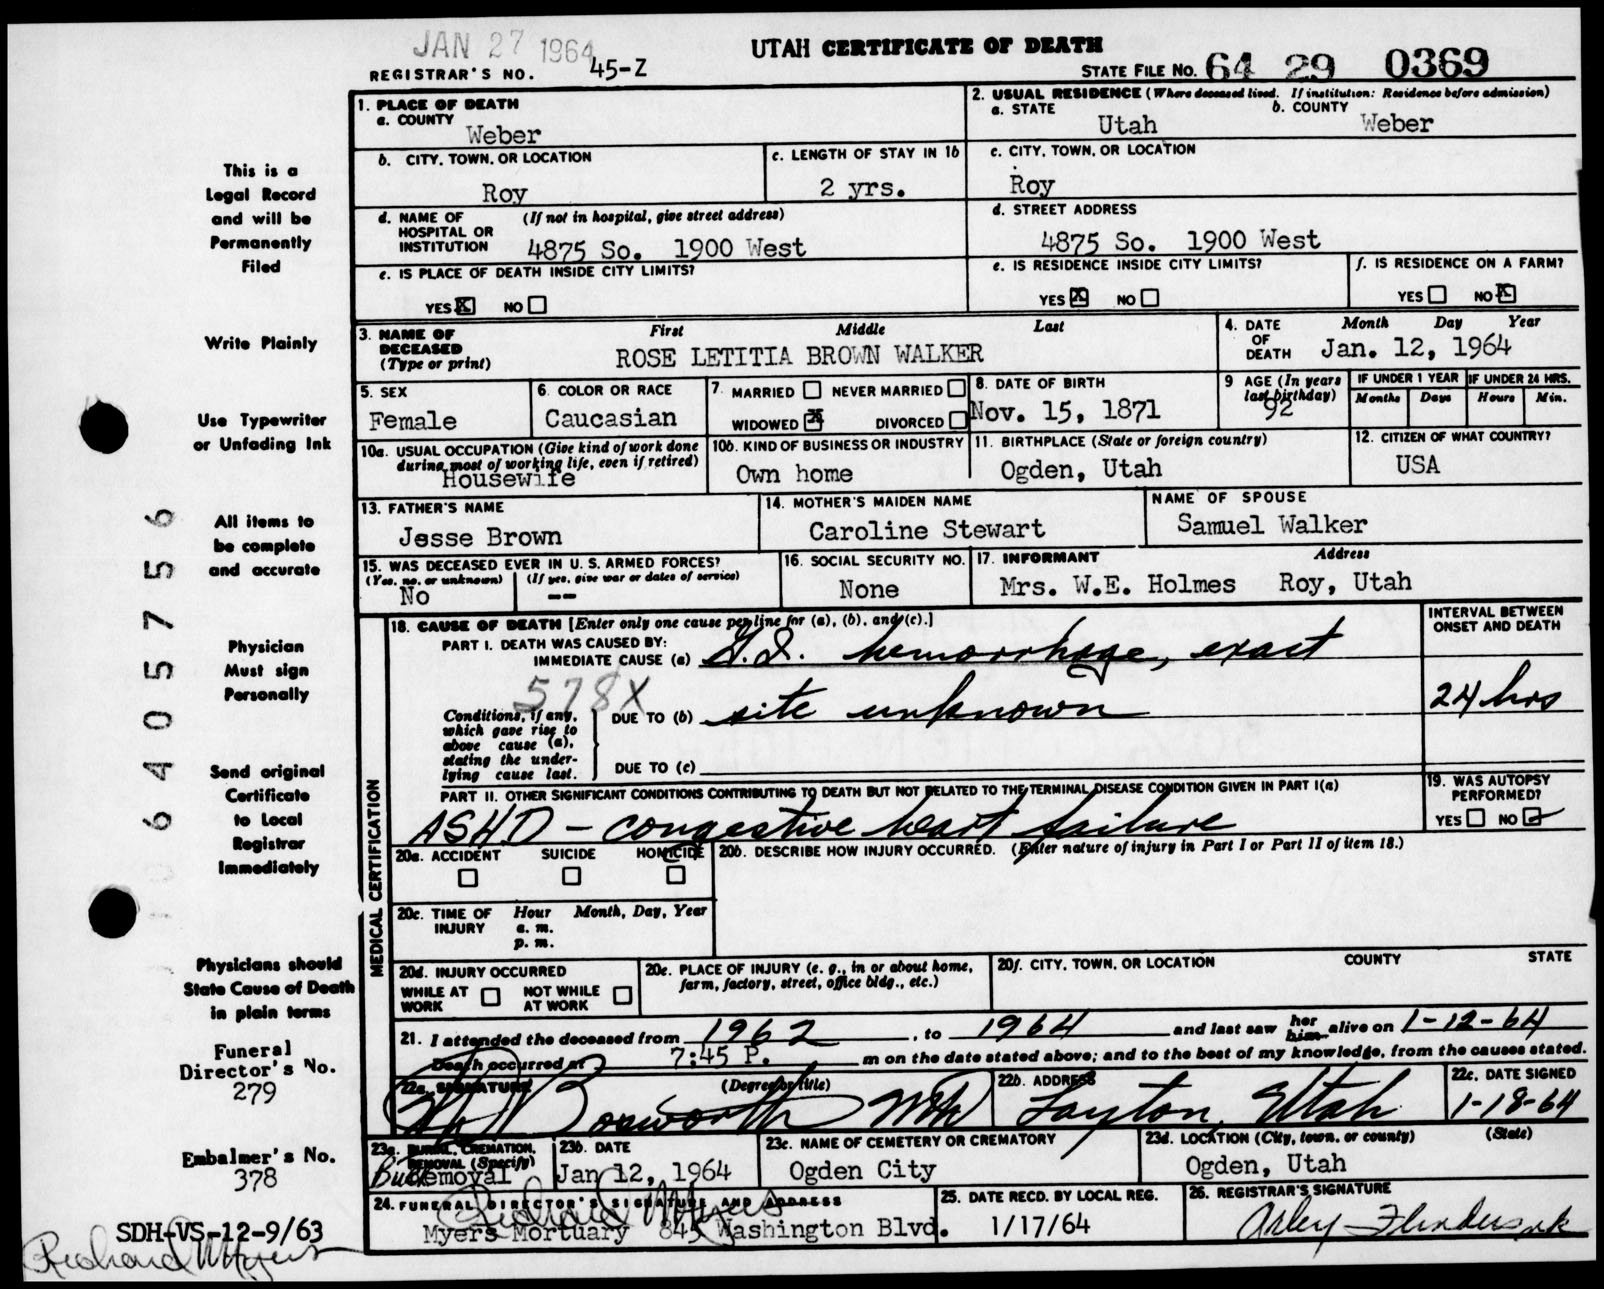 JAN 27 1964
UTAH CERTIFICATE OF DEATH
REGISTRAR'S NO. 45-Z
STATE FILE NO. 64 29 0369
1. PLACE OF DEATH
a. COUNTY
Weber
2. USUAL RESIDENCE (Where deceased lived. If institution: Residence before admission)
a. STATE
Utah
b. COUNTY
Weber
b. CITY, TOWN, OR LOCATION
Roy
c. LENGTH OF STAY IN 1b
2 yrs.
c. CITY, TOWN, OR LOCATION
Roy
d. NAME OF HOSPITAL OR INSTITUTION
(If not in hospital, give street address)
4875 So. 1900 West
d. STREET ADDRESS
4875 So. 1900 West
e. IS PLACE OF DEATH INSIDE CITY LIMITS?
YES X NO
e. IS RESIDENCE INSIDE CITY LIMITS?
YES X NO
f. IS RESIDENCE ON A FARM?
YES NO X
3. NAME OF DECEASED (Type or print)
First Middle Last
ROSE LETITIA BROWN WALKER
4. DATE OF DEATH
Month Day Year
Jan. 12, 1964
5. SEX
Female
6. COLOR OR RACE
Caucasian
7. MARRIED NEVER MARRIED
WIDOWED X DIVORCED
8. DATE OF BIRTH
Nov. 15, 1871
9 AGE (In years last birthday)
92
IF UNDER 1 YEAR
Months Days
IF UNDER 24 HRS.
Hours Min.
10a. USUAL OCCUPATION (Give kind of work done during most of working life, even if retired)
Housewife
10b. KIND OF BUSINESS OR INDUSTRY
Own home
11. BIRTHPLACE (State or foreign country)
Ogden, Utah
12. CITIZEN OF WHAT COUNTRY?
USA
13. FATHER'S NAME
Jesse Brown
14. MOTHER'S MAIDEN NAME
Caroline Stewart
NAME OF SPOUSE
Samuel Walker
15. WAS DECEASED EVER IN U. S. ARMED FORCES?
(Yes, no, or unknown) (If yes, give war or dates of service)
No --
16. SOCIAL SECURITY NO.
None
17. INFORMANT Address
Mrs. W.E. Holmes Roy, Utah
MEDICAL CERTIFICATION
18. CAUSE OF DEATH [Enter only one cause per line for (a), (b), and (c).]
INTERVAL BETWEEN ONSET AND DEATH
PART I. DEATH WAS CAUSED BY:
IMMEDIATE CAUSE (a) G.I. hemorrhage, exact
578X
Conditions, if any, which gave rise to above cause (a), stating the underlying cause last.
DUE TO (b) site unknown
24 hrs
DUE TO (c)
PART II. OTHER SIGNIFICANT CONDITIONS CONTRIBUTING TO DEATH BUT NOT RELATED TO THE TERMINAL DISEASE CONDITION GIVEN IN PART I(a)
ASHD - congestive heart failure
19. WAS AUTOPSY PERFORMED?
YES NO
20a. ACCIDENT SUICIDE HOMICIDE
20b. DESCRIBE HOW INJURY OCCURRED. (Enter nature of injury in Part I or Part II of item 18.)
20c. TIME OF INJURY
Hour Month, Day, Year
a. m.
p. m.
20d. INJURY OCCURRED
WHILE AT WORK NOT WHILE AT WORK
20e. PLACE OF INJURY (e. g., in or about home, farm, factory, street, office bldg., etc.)
20f. CITY, TOWN, OR LOCATION COUNTY STATE
21. I attended the deceased from 1962, to 1964 and last saw her him alive on 1-12-64
Death occurred at 7:45 P. m on the date stated above; and to the best of my knowledge, from the causes stated.
22a. SIGNATURE (Degree or title)
Bosworth MD
22b. ADDRESS
Layton, Utah
22c. DATE SIGNED
1-18-64
23a. BURIAL, CREMATION, REMOVAL (Specify)
Removal
23b. DATE
Jan 12, 1964
23c. NAME OF CEMETERY OR CREMATORY
Ogden City
23d. LOCATION (City, town, or county) (State)
Ogden, Utah
24. FUNERAL DIRECTOR'S SIGNATURE AND ADDRESS
Richard W Myers
Myers Mortuary 845 Washington Blvd.
25. DATE RECD. BY LOCAL REG.
1/17/64
26. REGISTRAR'S SIGNATURE
This is a
Legal Record
and will be
Permanently
Filed
Write Plainly
Use Typewriter
or Unfading Ink
All items to
be complete
and accurate
Physician
Must sign
Personally
Send original
Certificate
to Local
Registrar
Immediately
Physicians should
State Cause of Death
in plain terms
Funeral
Director's No.
279
Embalmer's No.
378
SDH-VS-12-9/63
Richard W Myers
6405756